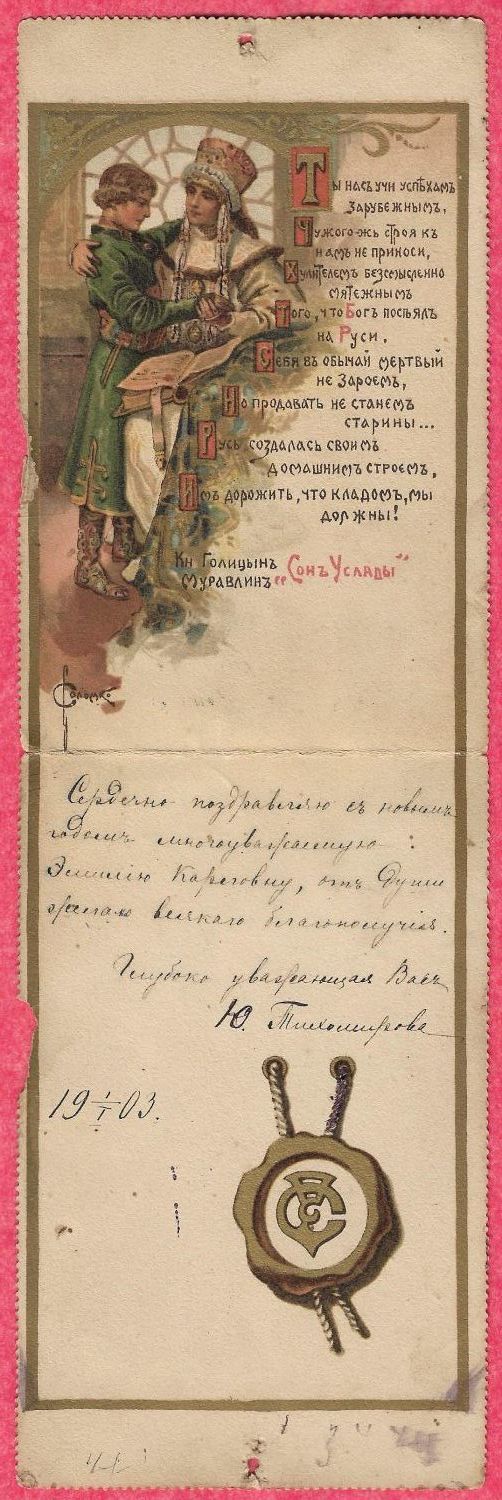 Ты насъ учи успѣхамъ
зарубежнымъ,
Чужого-жь строя къ
намъ не приноси,
Хулителемъ безсмысленно
мятежнымъ
Того, что Богъ посѣялъ
на Руси.
Себя въ обычай мертвый
не Зароемъ,
Но продавать не станемъ
старины...
Русь создалась своимъ
домашнимъ строемъ,
Имъ дорожить, что кладомъ, мы
должны!
Кн Голицынъ
Муравлинъ „Сонъ Услады"
Соломко
Сердечно поздравляю съ новымъ
годомъ многоуважаемую
Эмилію Карловну, отъ души
желаю всякаго благополучія.
Глубоко уважающая Васъ
Ю. Тихомирова
19 1/I 03.